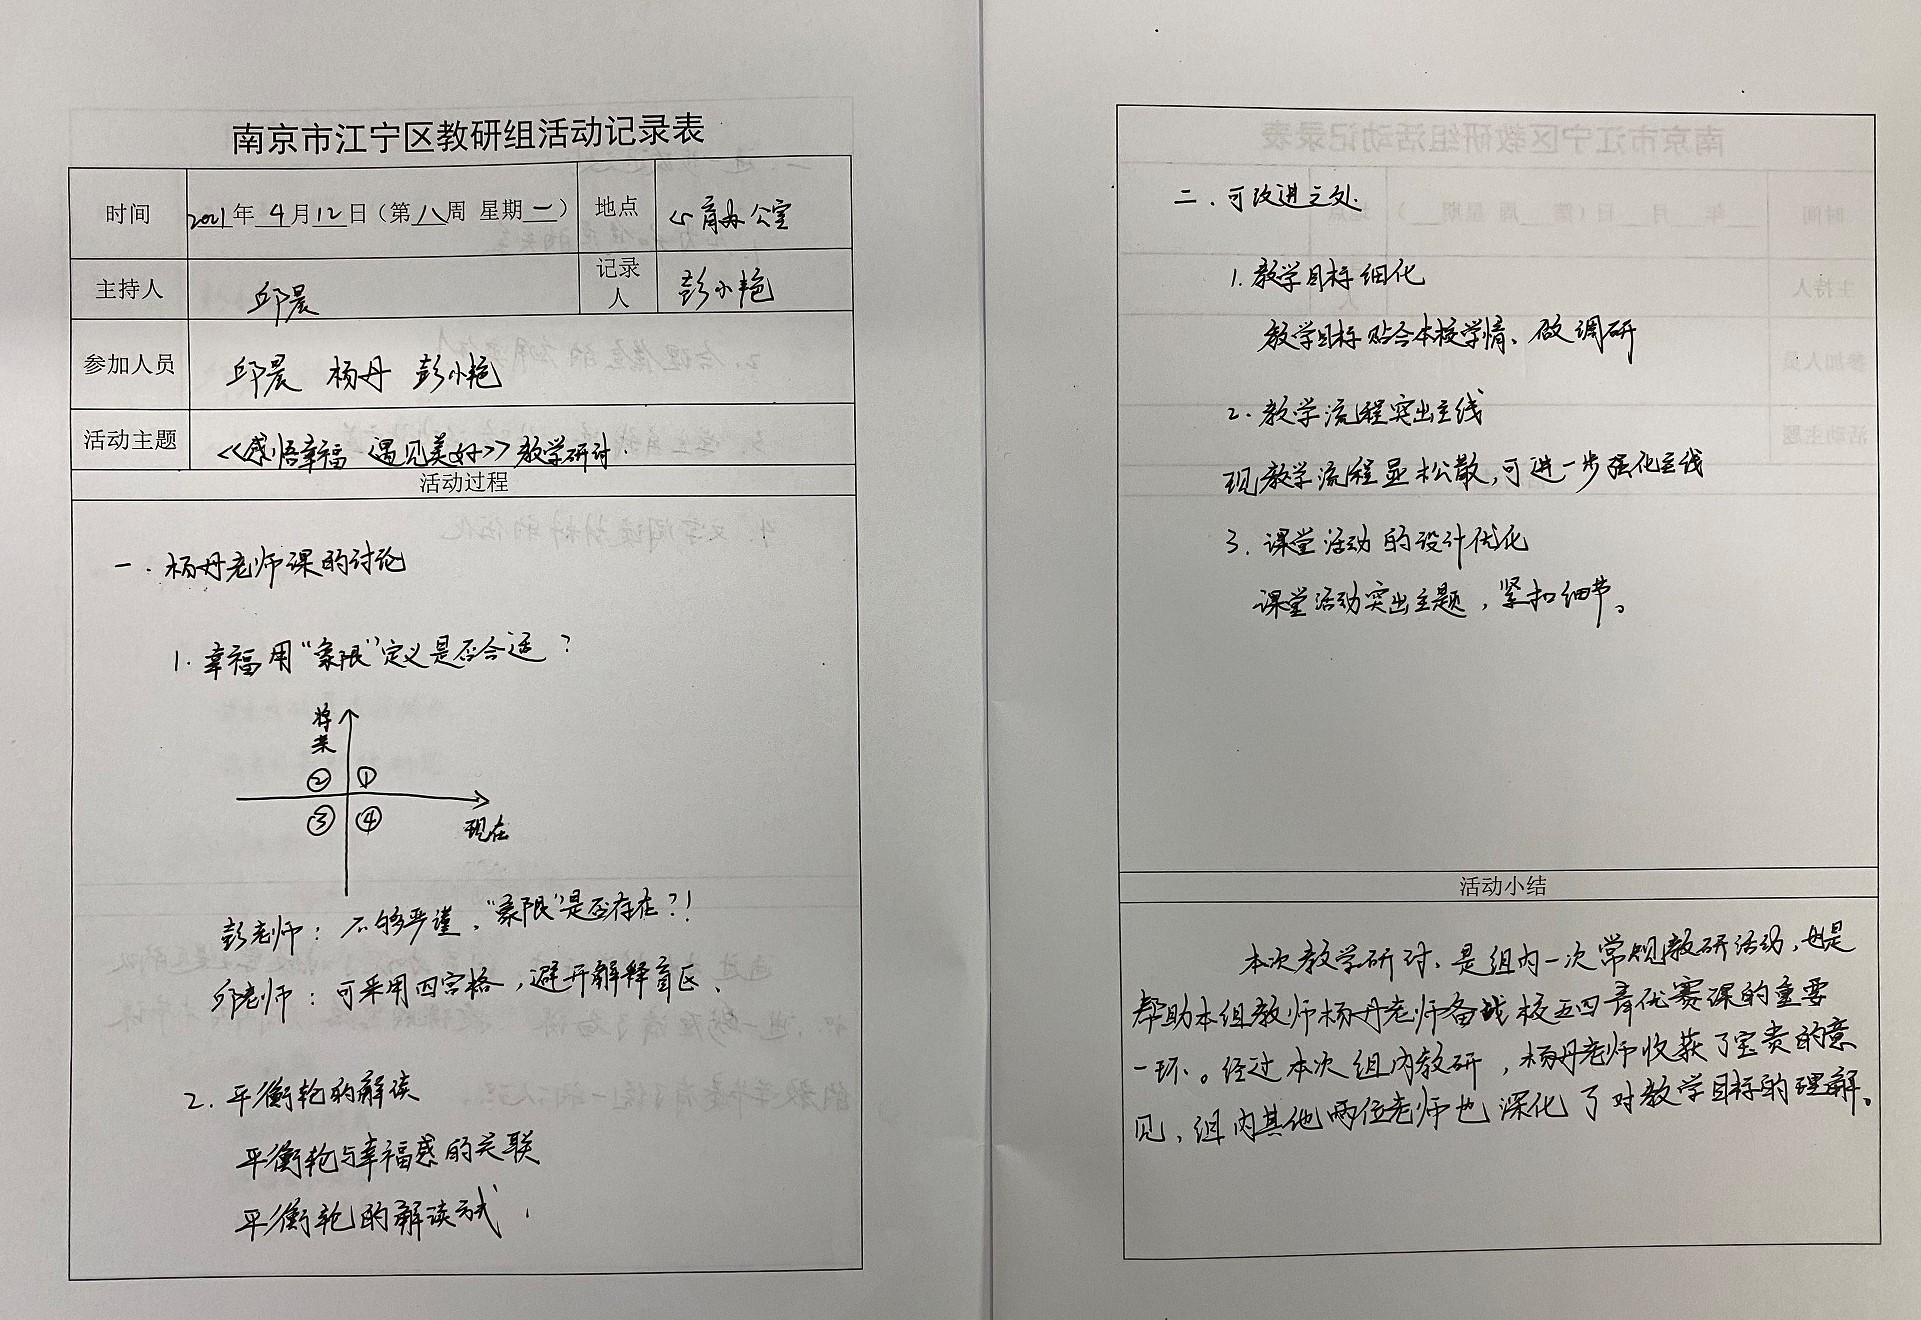 南京市江宁区教研组活动记录表
时间 2021年 4月12日(第八周 星期一) 地点 心育办公室
主持人 邱晨 记录人 彭小艳
参加人员 邱晨 杨丹 彭小艳
活动主题 《感悟幸福 遇见美好》教学研讨.
活动过程
一.杨丹老师课的讨论
1.幸福用“象限”定义是否合适?
将来
② ①
③ ④
现在
彭老师:不够严谨,“象限”是否存在?!
邱老师:可采用四宫格,避开解释盲区、
2.平衡轮的解读
平衡轮与幸福感的关联
平衡轮的解读方式.
二.可改进之处
1.教学目标细化
教学目标贴合本校学情、做调研
2.教学流程突出主线
现教学流程显松散,可进一步强化主线
3.课堂活动的设计优化
课堂活动突出主题,紧扣细节。
活动小结
本次教学研讨、是组内一次常规教研活动,也是
帮助本组教师杨丹老师备战校五四青优赛课的重要
一环。经过本次组内教研,杨丹老师收获了宝贵的意
见、组内其他两位老师也深化了对教学目标的理解。